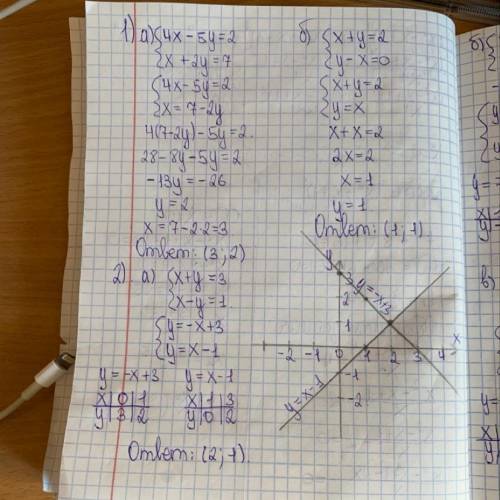 1) а) {4x-5y=2
{x+2y=7
{4x-5y=2
{x=7-2y
4(7-2y)-5y=2.
28-8y-5y=2
-13y=-26
y=2
x=7-2·2=3
Ответ: (3;2)
б) {x+y=2
{y-x=0
{x+y=2
{y=x
x+x=2
2x=2
x=1
y=1
Ответ: (1;1).
2) а) {x+y=3
{x-y=1.
{y=-x+3
{y=x-1
y=-x+3 y=x-1
x|0|1 x|1|3
y|3|2 y|0|2
Ответ: (2;1).
y
3 y=-x+3
2
1
x
-2 -1 0 1 2 3 4
-1
-2
y=x-1
б)
в)